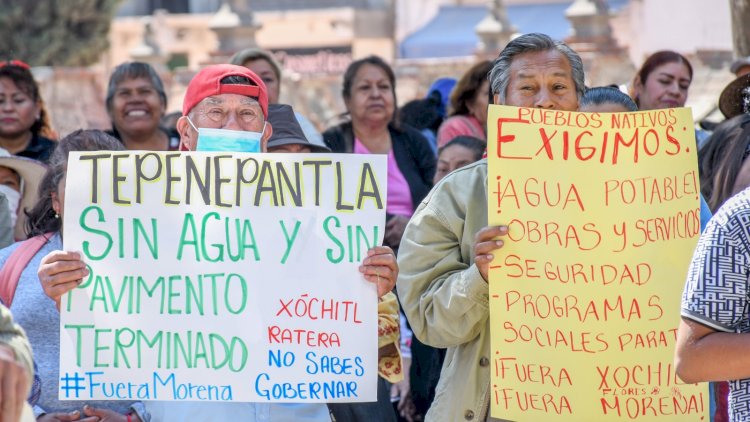 TEPENEPANTLA
SIN AGUA Y SIN
PAVIMENTO
TERMINADO
#FueraMorena
XÓCHITL
RATERA
NO SABES
GOBERNAR
PUEBLOS NATIVOS
EXIGIMOS:
¡AGUA POTABLE!
OBRAS Y SERVICIOS
-SEGURIDAD
-PROGRAMAS
SOCIALES PARA T
¡FUERA XOCHIL
FLORES
¡FUERA MORENA!